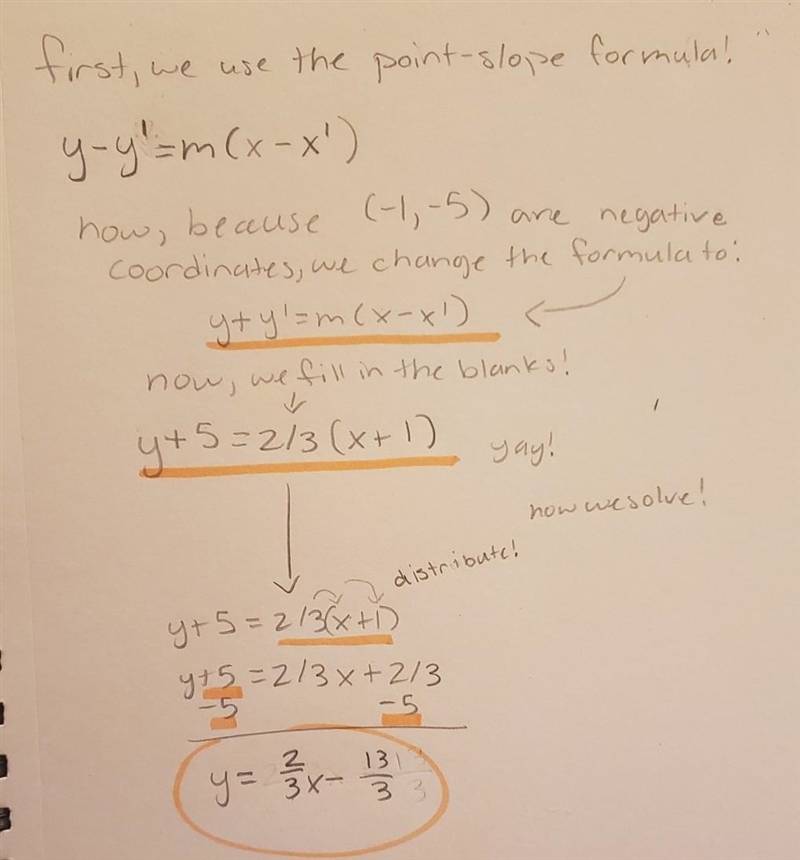 first, we use the point-slope formula!
y-y'=m(x-x')
now, because (-1,-5) are negative
coordinates, we change the formula to:
y+y'=m(x-x')
now, we fill in the blanks!
y+5=2/3(x+1) yay!
now we solve!
distribute!
y+5=2/3(x+1)
y+5=2/3x+2/3
-5 -5
y=2/3x-13/3